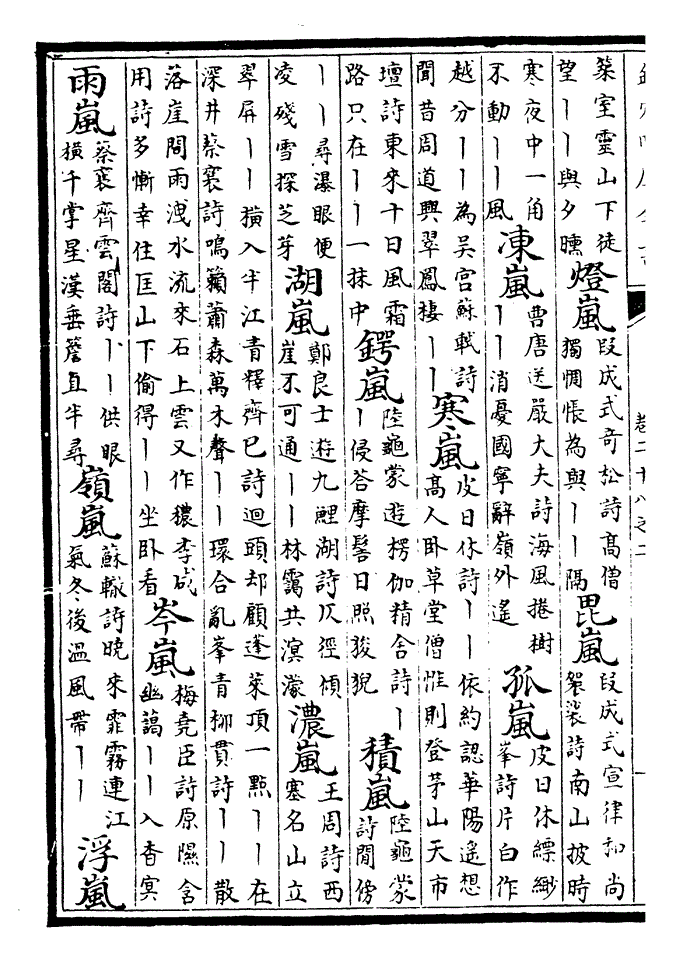 卷二十八之二
築室靈山下徒
望丨丨與夕曛
燈嵐
段成式奇松詩高僧
獨惆悵為與丨丨隔
毘嵐
段成式宣律和尚
袈裟詩南山披時
寒夜中一角
不動丨丨風
凍嵐
曹唐送嚴大夫詩海風捲樹
丨丨消憂國寧辭嶺外遙
孤嵐
皮日休縹緲
峯詩片白作
越分丨丨為吳宮蘇軾詩
聞昔周道興翠鳳棲丨丨
寒嵐
皮日休詩丨丨依約認華陽遙想
高人卧草堂僧惟則登茅山天市
壇詩東來十日風霜
路只在丨丨一抹中
鍔嵐
陸龜蒙遊楞伽精舍詩丨
丨侵荅摩髻日照狻猊
積嵐
陸龜蒙
詩閒傍
丨丨尋瀑眼便
凌殘雪探芝芽
湖嵐
鄭良士遊九鯉湖詩仄徑傾
崖不可通丨丨林靄共溟濛
濃嵐
王周詩西
塞名山立
翠屏丨丨橫入半江青釋齊已詩迴頭却顧蓬萊頂一點丨丨在
深井蔡襄詩鳴籟蕭森萬木聲丨丨環合亂峯青柳貫詩丨丨散
落崖間雨洩水流來石上雲又作禯李咸
用詩多慚幸住匡山下偷得丨丨坐卧看
岑嵐
梅堯臣詩原隰含
幽藹丨丨入杳冥
雨嵐
蔡襄齊雲閣詩丨丨供眼
橫千掌星漢垂簷直半尋
嶺嵐
蘇轍詩曉來霏霧連江
氣冬後溫風帶丨丨
浮嵐